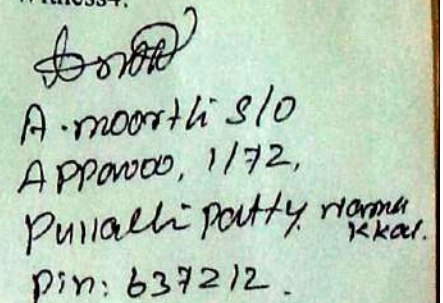 Witness4:
A. moorthi S/O
Appavoo, 1/72,
Pullalli patty. Nama
kkal.
Pin: 637212.